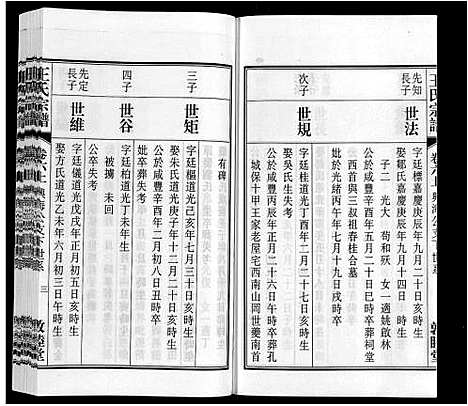 王氏宗譜
先知長子
世法
字廷標嘉慶庚辰年八月二十三日亥時生
娶鄒氏嘉慶庚辰年九月十四日 時生
子二 光大 苟和殀 女一適姚啟林
公於咸豐辛酉年五月二十日巳時卒葬祠堂
嘴首與三叔祖春桂合墓
妣於光緒丙午年七月十九日戌時卒
次子
世規
字廷桂道光丁酉年二月二十七日亥時生
娶吳氏生卒失考
公於咸豐辛酉年正月二十六日午時卒葬孔
城保十甲王家老屋宅西南山岡世虁南首
有碑
三子
世矩
字廷樞道光己亥年七月三十日亥時生
娶朱氏道光庚子年十二月二十日亥時生
公於咸豐辛酉年二月初八日丑時卒
妣卒葬失考
四子
世谷
字廷柏道光丁未年 時生
被擄 未回
公卒失考
先定長子
世維
字廷儀道光甲午年正月初五日亥時生
娶方氏道光乙未年六月初三日午時生
王氏宗譜
三
敦睦堂